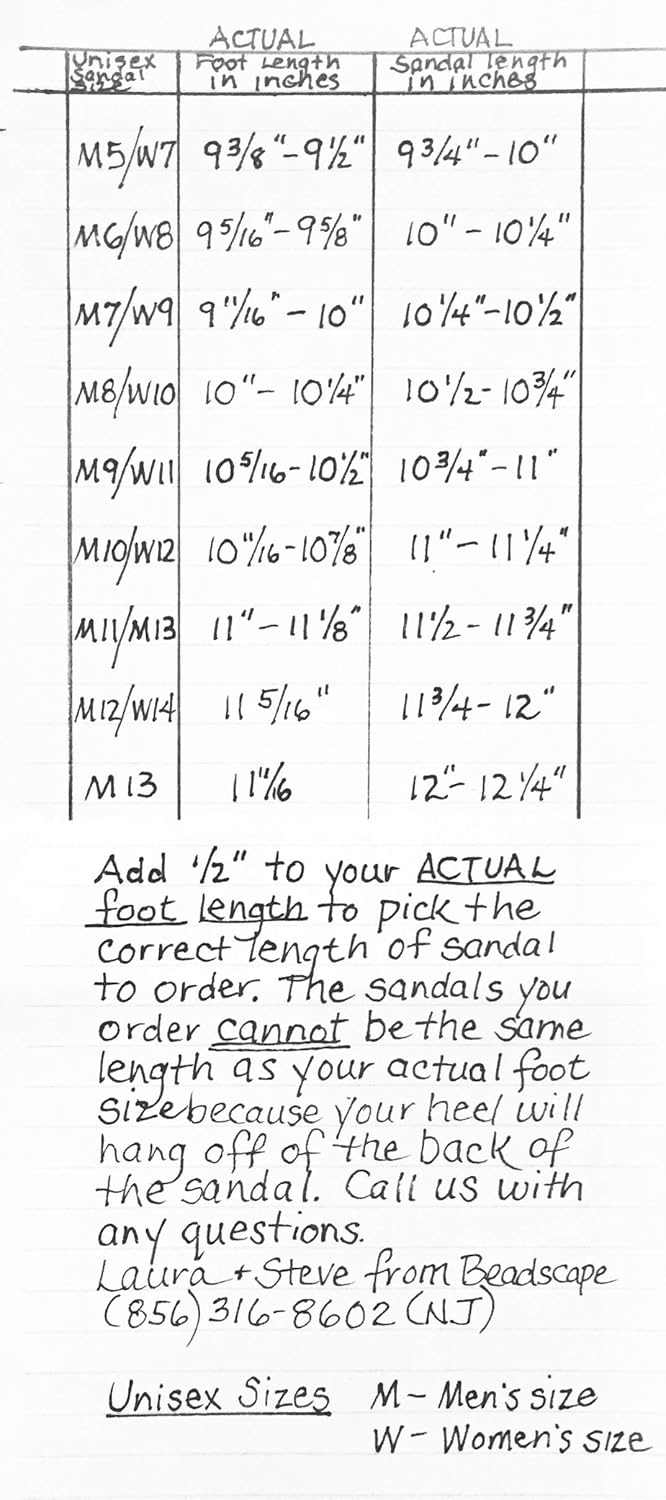 ACTUAL ACTUAL
Unisex Sandal Size Foot Length in inches Sandal length in inches
M5/W7 9 3/8"-9 1/2" 9 3/4"-10"
M6/W8 9 5/16"-9 5/8" 10"-10 1/4"
M7/W9 9 11/16"-10" 10 1/4"-10 1/2"
M8/W10 10"-10 1/4" 10 1/2-10 3/4"
M9/W11 10 5/16-10 1/2" 10 3/4"-11"
M10/W12 10 11/16-10 7/8" 11"-11 1/4"
M11/M13 11"-11 1/8" 11 1/2-11 3/4"
M12/W14 11 5/16" 11 3/4-12"
M13 11 11/16 12"-12 1/4"
Add 1/2" to your ACTUAL
foot length to pick the
correct length of sandal
to order. The sandals you
order cannot be the same
length as your actual foot
size because your heel will
hang off of the back of
the sandal. Call us with
any questions.
Laura + Steve from Beadscape
(856) 316-8602 (NJ)
Unisex Sizes M - Men's size
W - Women's size